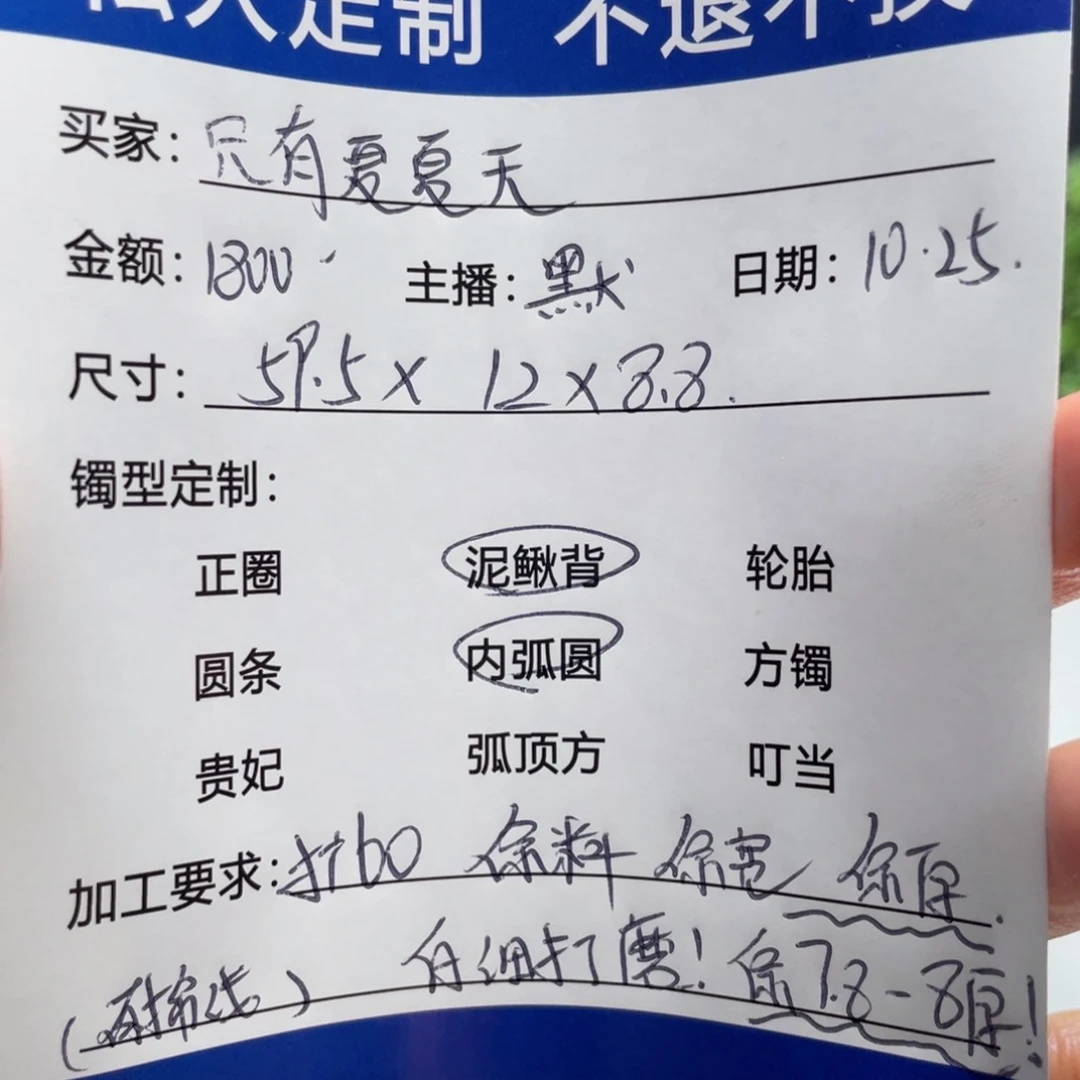 私人定制 不退不换
买家：只有夏夏天
金额：1800 主播：默 日期：10.25.
尺寸：59.5 x 12 x 8.8.
镯型定制：
正圈 泥鳅背 轮胎
圆条 内弧圆 方镯
贵妃 弧顶方 叮当
加工要求：扩60 保料 保宽 保厚.
仔细打磨！保7.8-8厚！